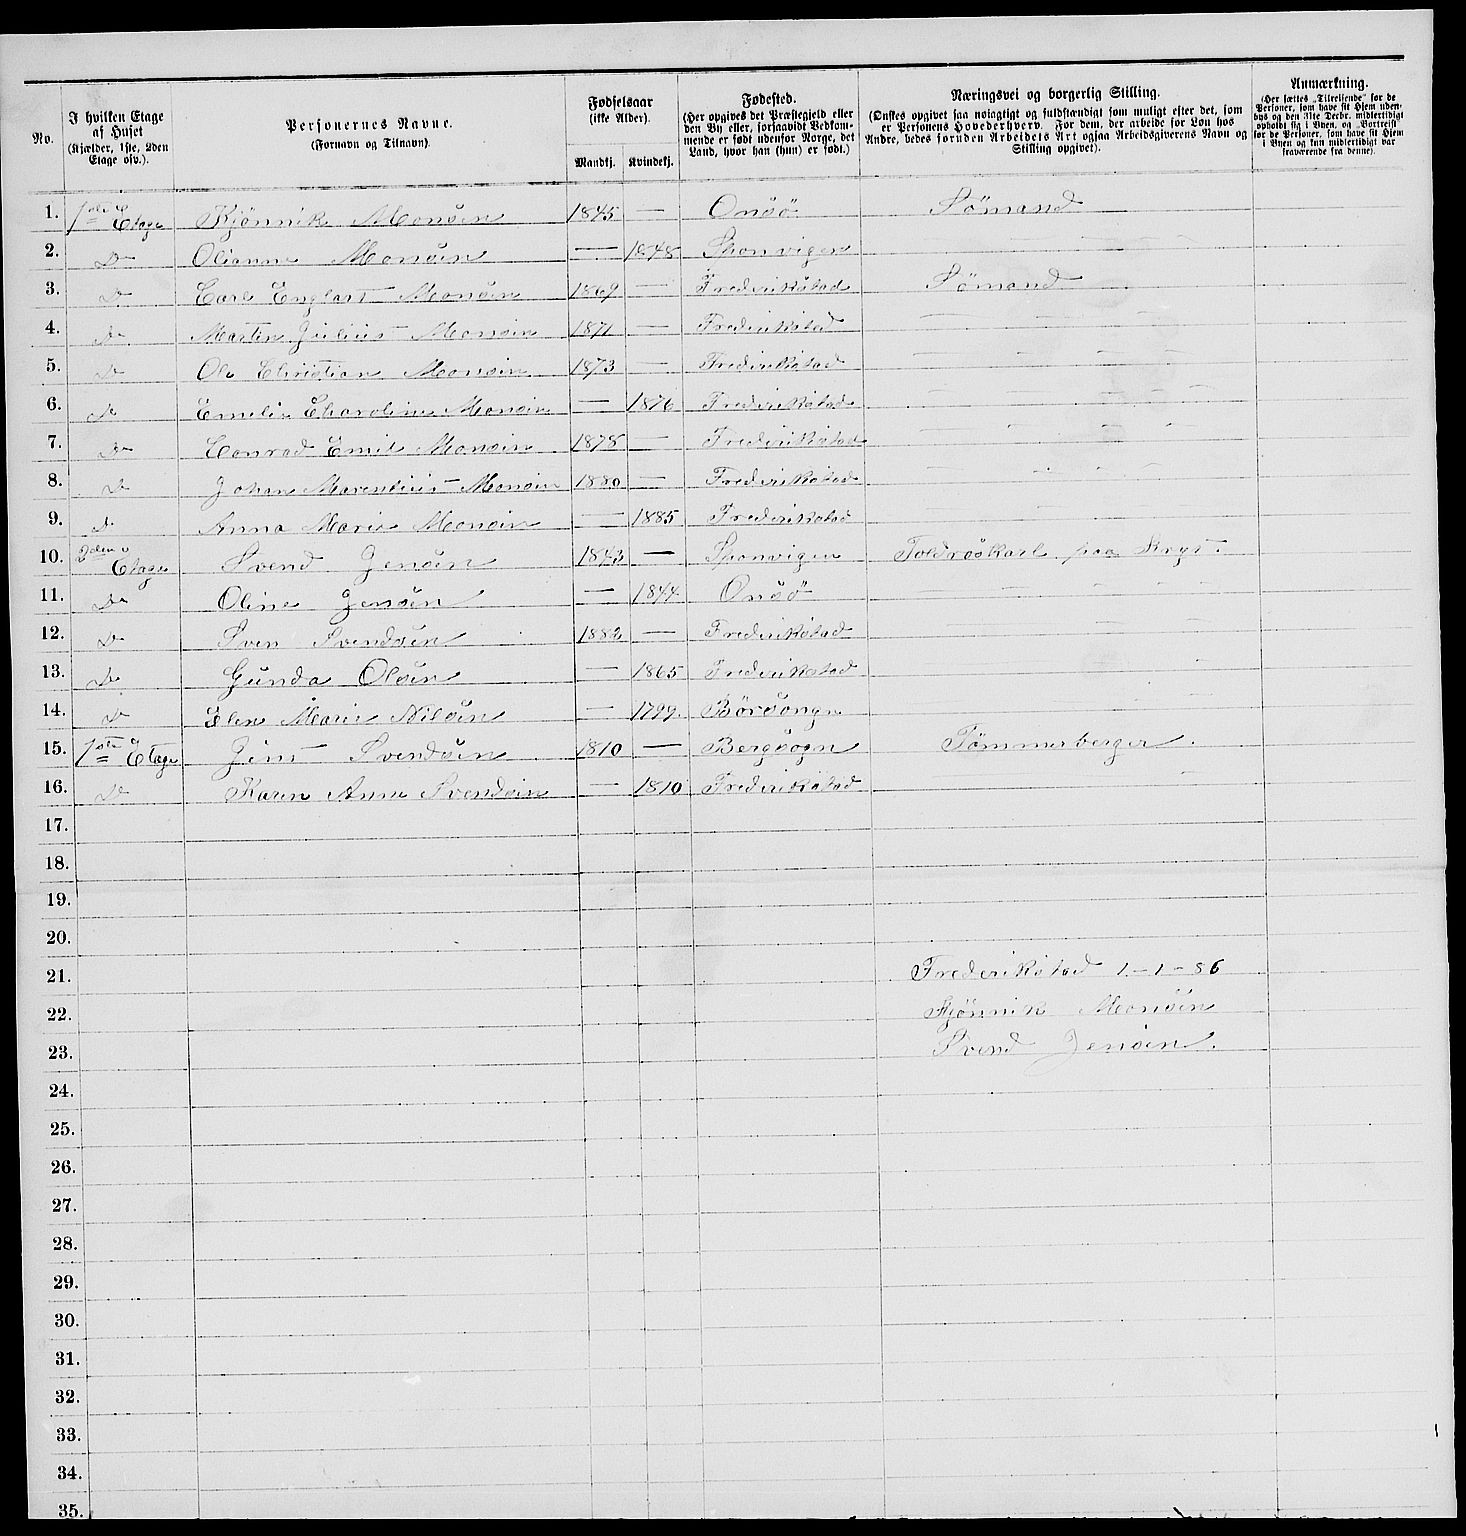 No.
I hvilken Etage af Huset
(Kjælder, 1ste, 2den Etage osv.).
Personernes Navne.
(Fornavn og Tilnavn).
Fødselsaar
(ikke Alder).
Mandkj. Kvindekj.
Fødested.
(Her opgives det Præstegjeld eller
den By eller, forsaavidt Vedkom-
mende er født udenfor Norge, det
Land, hvor han (hun) er født.)
Næringsvei og borgerlig Stilling.
(Ønskes opgivet saa nøiagtigt og fuldstændigt som muligt efter det, som
er Personens Hovederhverv. For dem, der arbeide for Løn hos
Andre, bedes foruden Arbeidets Art ogsaa Arbeidsgiverens Navn og
Stilling opgivet).
Anmærkning.
(Her sættes „Tilreisende“ for de
Personer, som have sit Hjem uden-
bys og den 31te Decbr. midlertidigt
opholdt sig i Byen, og „Bortreist“
for de Personer, som have sit Hjem
i Byen og kun midlertidigt var
fraværende fra denne).
1. 1ste Etage Kjönnik Monsen 1845 — Onsö Sömand
2. Do Olianne Monsen — 1848 Sponvigen
3. Do Carl Englart Monsen 1869 — Frederikstad Sömand
4. Do Martin Julius Monsen 1871 — Frederikstad
5. Do Ole Christian Monsen 1873 — Frederikstad
6. Do Emelie Charoline Monsen — 1876 Frederikstad
7. Do Conrad Emil Monsen 1878 — Frederikstad
8. Do Johan Marentius Monsen 1880 — Frederikstad
9. Do Anna Marie Monsen — 1885 Frederikstad
10. 2den Etage Svend Jensen 1843 — Sponvigen Toldroskarl paa Krys.
11. Do Oline Jensen — 1844 Onsö
12. Do Sven Svendsen 1882 — Frederikstad
13. Do Gunda Olsen — 1865 Frederikstad
14. Do Elen Marie Nilsen — 1799 Börsongn
15. 1ste Etage Jens Svendsen 1810 — Bergsogn Tömmerberger.
16. Do Karen Anne Svendsen — 1810 Frederikstad
17.
18.
19.
20.
21. Frederikstad 1-1-86
22. Kjönnik Monsen
23. Svend Jensen.
24.
25.
26.
27.
28.
29.
30.
31.
32.
33.
34.
35.